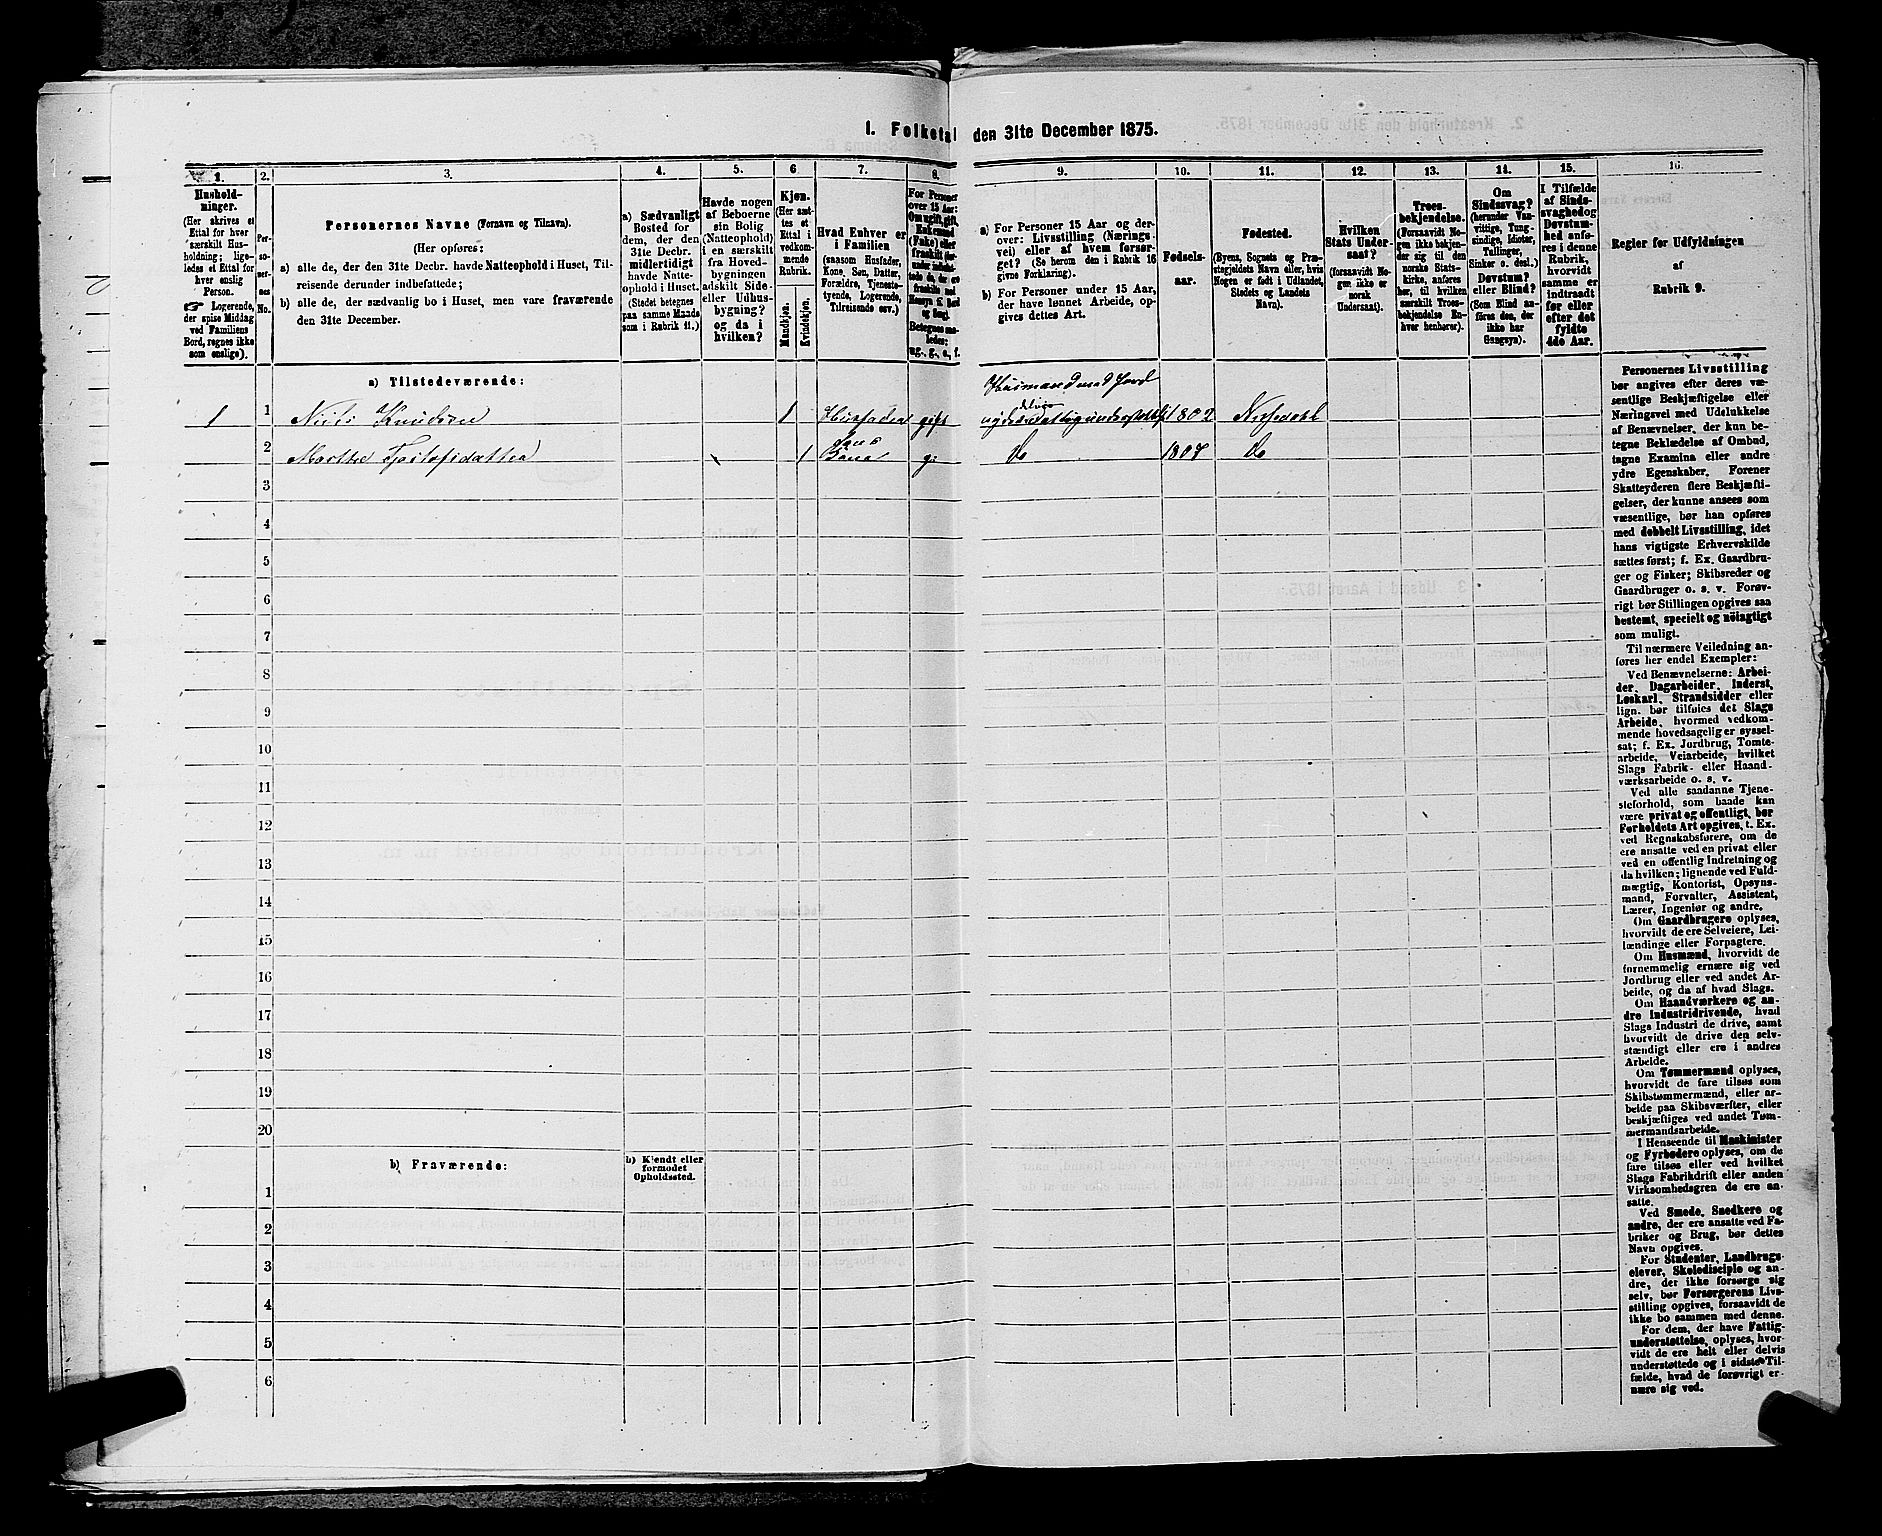 1. Folketal den 31te December 1875.
1.
Hushold-
ninger.
(Her skrives et
Ettal for hver
særskilt Hus-
holdning; lige-
ledes et Ettal for
hver enslig
Person.
☞ Logerende,
der spise Middag
ved Familiens
Bord, regnes ikke
som enslige).
2.
Per-
so-
ner-
nes
No.
3.
Personernes Navne (Fornavn og Tilnavn).
(Her opføres:
a) alle de, der den 31te Decbr. havde Natteophold i Huset, Til-
reisende derunder indbefattede;
b) alle de, der sædvanlig bo i Huset, men vare fraværende
den 31te December.
4.
a) Sædvanligt
Bosted for
dem, der den
31te Decbr.
midlertidigt
havde Natte-
ophold i Huset.
(Stedet betegnes
paa samme Maade
som i Rubrik 11.)
5.
Havde nogen
af Beboerne
sin Bolig
(Natteophold)
i en særskilt
fra Hoved-
bygningen
adskilt Side-
eller Udhus-
bygning?
og da i
hvilken?
6
Kjøn.
(Her sæt-
tes et
Ettal i
vedkom-
mende
Rubrik.
Mandkjøn.
Kvindekjøn.
7.
Hvad Enhver er
i Familien
(saasom Husfader,
Kone, Søn, Datter,
Forældre, Tjeneste-
tyende, Logerende,
Tilreisende osv.)
8.
For Personer
over 15 Aar:
Om ugift, gift,
Enkemand
(Enke) eller
fraskilt
Betegnes saa-
ledes:
ug., g., e., f.
9.
a) For Personer 15 Aar og der-
over: Livsstilling (Nærings-
vei) eller af hvem forsør-
get? (Se herom den i Rubrik 16
givne Forklaring).
b) For Personer under 15 Aar,
der have lønnet Arbeide, op-
gives dettes Art.
10.
Fødsels-
aar.
11.
Fødested.
(Byens, Sognets og Præ-
stegjeldets Navn eller, hvis
Nogen er født i Udlandet,
Stedets og Landets
Navn).
12.
Hvilken
Stats Under-
saat?
(forsaavidt No-
gen ikke er
norsk
Undersaat).
13.
Troes-
bekjendelse.
(Forsaavidt No-
gen ikke bekjen-
der sig til den
norske Stats-
kirke, anføres
her, til hvilken
særskilt Troes-
bekjendelse En-
hver henhører).
14.
Om
Sindssvag?
(herunder Van-
vittige, Tung-
sindige, Idioter,
Tullinger,
Sinker o. desl.)
Døvstum?
eller Blind?
(Som Blind an-
føres den, der
ikke har
Gangsyn).
15.
I Tilfælde
af Sinds-
svaghed og
Døvstum-
hed anfø-
res i denne
Rubrik,
hvorvidt
samme er
indtraadt
før eller
efter det
fyldte
4de Aar.
16.
Regler for Udfyldningen
af
Rubrik 9.
a) Tilstedeværende:
Husmand med Jord
1 1 Niels Knudsen 1 Husfader gift delvis 1802 Nissedal
2 Marthe 1 hans Kone g. Do 1807 Do
3
4
5
6
7
8
9
10
11
12
13
14
15
16
17
18
19
20
b) Fraværende:
b) Kjendt eller
formodet
Opholdssted.
1
2
3
4
5
6
Personernes Livsstilling
bør angives efter deres væ-
sentlige Beskjæftigelse eller
Næringsvei med Udelukkelse
af Benævnelser, der kun be-
tegne Beklædelse af Ombud,
tagne Examina eller andre
ydre Egenskaber. Forener
Skatteyderen flere Beskjæfti-
gelser, der kunne ansees som
væsentlige, bør han opføres
med dobbelt Livsstilling, idet
hans vigtigste Erhvervskilde
sættes først; f. Ex. Gaardbru-
ger og Fisker; Skibsreder og
Gaardbruger o. s. v. Forøv-
rigt bør Stillingen opgives saa
bestemt, specielt og nöiagtigt
som muligt.
Til nærmere Veiledning an-
føres her endel Exempler:
Ved Benævnelserne: Arbei-
der, Dagarbeider, Inderst,
Løskarl, Strandsidder eller
lign. bør tilføies det Slags
Arbeide, hvormed vedkom-
mende hovedsagelig er syssel-
sat; f. Ex. Jordbrug, Tomte-
arbeide, Veiarbeide, hvilket
Slags Fabrik- eller Haand-
værksarbeide o. s. v.
Ved alle saadanne Tjene-
steforhold, som baade kan
være privat og offentligt, bør
Forholdets Art opgives, t. Ex.
ved Regnskabsførere, om de
ere ansatte ved en privat eller
ved en offentlig Indretning og
da hvilken; lignende ved Fuld-
mægtig, Kontorist, Opsyns-
mand, Forvalter, Assistent,
Lærer, Ingeniør og andre.
Om Gaardbrugere oplyses,
hvorvidt de ere Selveiere, Lei-
lændinge eller Forpagtere.
Om Husmænd, hvorvidt de
fornemmelig ernære sig ved
Jordbrug eller ved andet Ar-
beide, og da af hvad Slags.
Om Haandværkere og an-
dre Industridrivende, hvad
Slags Industri de drive, samt
hvorvidt de drive den selv-
stændigt eller ere i andres
Arbeide.
Om Tømmermænd oplyses,
hvorvidt de fare tilsøs som
Skibstømmermænd, eller ar-
beide paa Skibsværfter, eller
beskjæftiges ved andet Tøm-
mermandsarbeide.
I Henseende til Maskinister
og Fyrbødere oplyses, om de
fare tilsøs eller ved hvilket
Slags Fabrikdrift eller anden
Virksomhedsgren de ere an-
satte.
Ved Smede, Snedkere og
andre, der ere ansatte ved Fa-
briker og Brug, bør dettes
Navn opgives.
For Studenter, Landbrugs-
elever, Skoledisciple og an-
dre, der ikke forsørge sig
selv, bør Forsørgerens Livs-
stilling opgives, forsaavidt de
ikke bo sammen med denne.
For dem, der have Fattig-
understøttelse, oplyses, hvor-
vidt de ere helt eller delvis
understøttede og i sidste Til-
fælde, hvad de forøvrigt er-
nære sig ved.